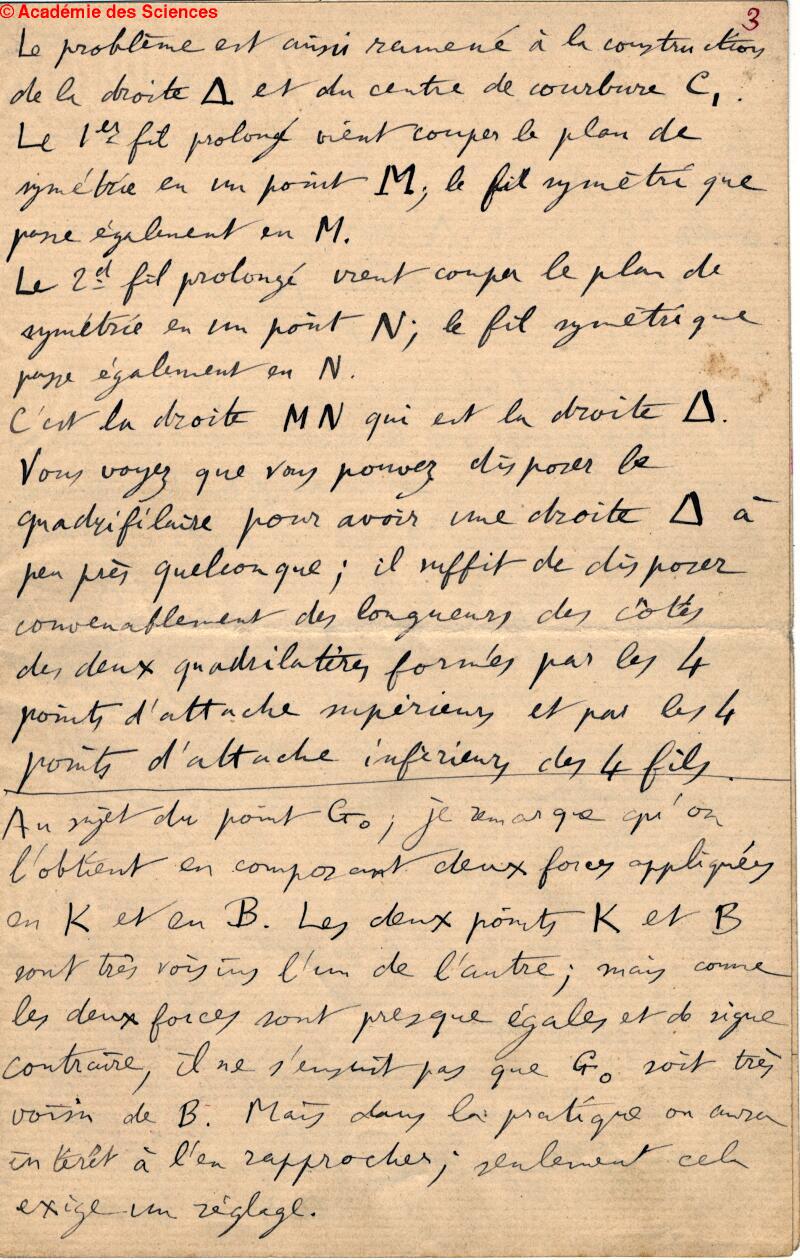 © Académie des Sciences
3
Le problème est ainsi ramené à la construction
de la droite Δ et du centre de courbure C₁.
Le 1er fil prolongé vient couper le plan de
symétrie en un point M; le fil symétrique
passe également en M.
Le 2d fil prolongé vient couper le plan de
symétrie en un point N; le fil symétrique
passe également en N.
C'est la droite MN qui est la droite Δ.
Vous voyez que vous pouvez disposer le
quadrifilaire pour avoir une droite Δ à
peu près quelconque; il suffit de disposer
convenablement des longueurs des côtés
des deux quadrilatères formés par les 4
points d'attache supérieurs et par les 4
points d'attache inférieurs des 4 fils.
Au sujet du point G₀; je remarque qu'on
l'obtient en composant deux forces appliquées
en K et en B. Les deux points K et B
sont très voisins l'un de l'autre; mais comme
les deux forces sont presque égales et de signe
contraire, il ne s'ensuit pas que G₀ soit très
voisin de B. Mais dans la pratique on aura
intérêt à l'en rapprocher; seulement cela
exige un réglage.